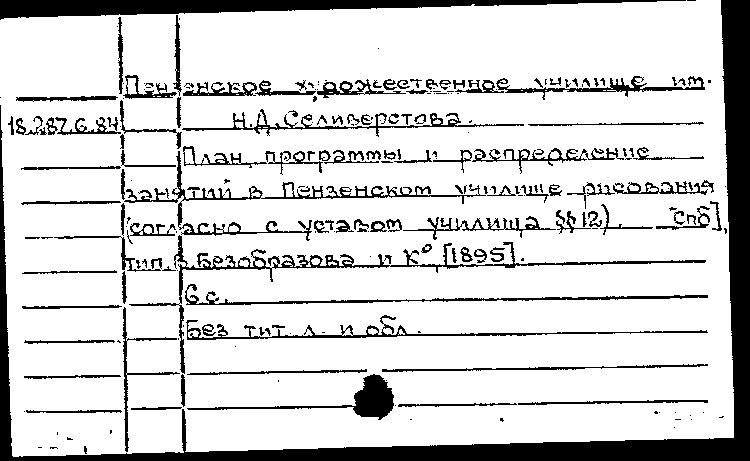 Пензенское художественное училище им.
18.287.6.84
Н.Д.Селиверстова.
План, программы и распределение
занятий в Пензенском училище рисования
(согласно с уставом училища §§ 12). [Спб],
тип. В.Безобразова и К°, [1895].
6 с.
Без тит. л. и обл.